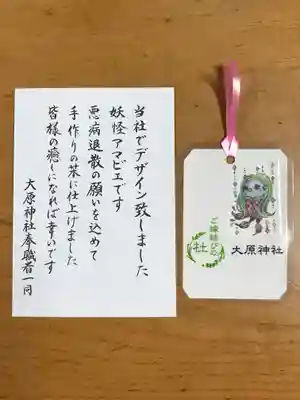 当社でデザイン致しました
妖怪アマビエです
悪病退散の願いを込めて
手作りの栞に仕上げました
皆様の癒しになれば幸いです
大原神社奉職者一同
大原神社
ご縁結び
社